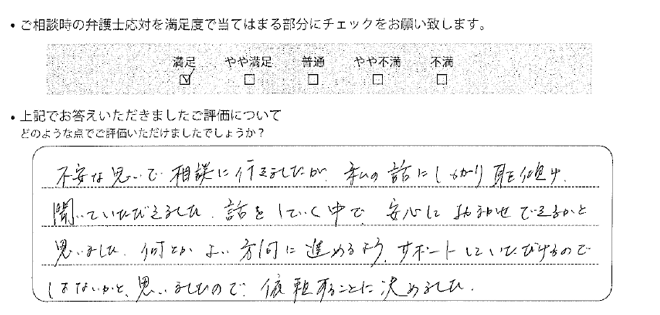 ・ご相談時の弁護士応対を満足度で当てはまる部分にチェックをお願い致します。
満足 やや満足 普通 やや不満 不満
☑ □ □ □ □
・上記でお答えいただきましたご評価について
どのような点でご評価いただけましたでしょうか？
不安な思いで相談に行きましたが、私の話にしっかり耳を傾け、
聞いていただきました。話をしていく中で、安心しておまかせできるかと
思いました。何とかよい方向に進めるよう、サポートしていただけるので
はないかと、思いましたので、依頼することに決めました。